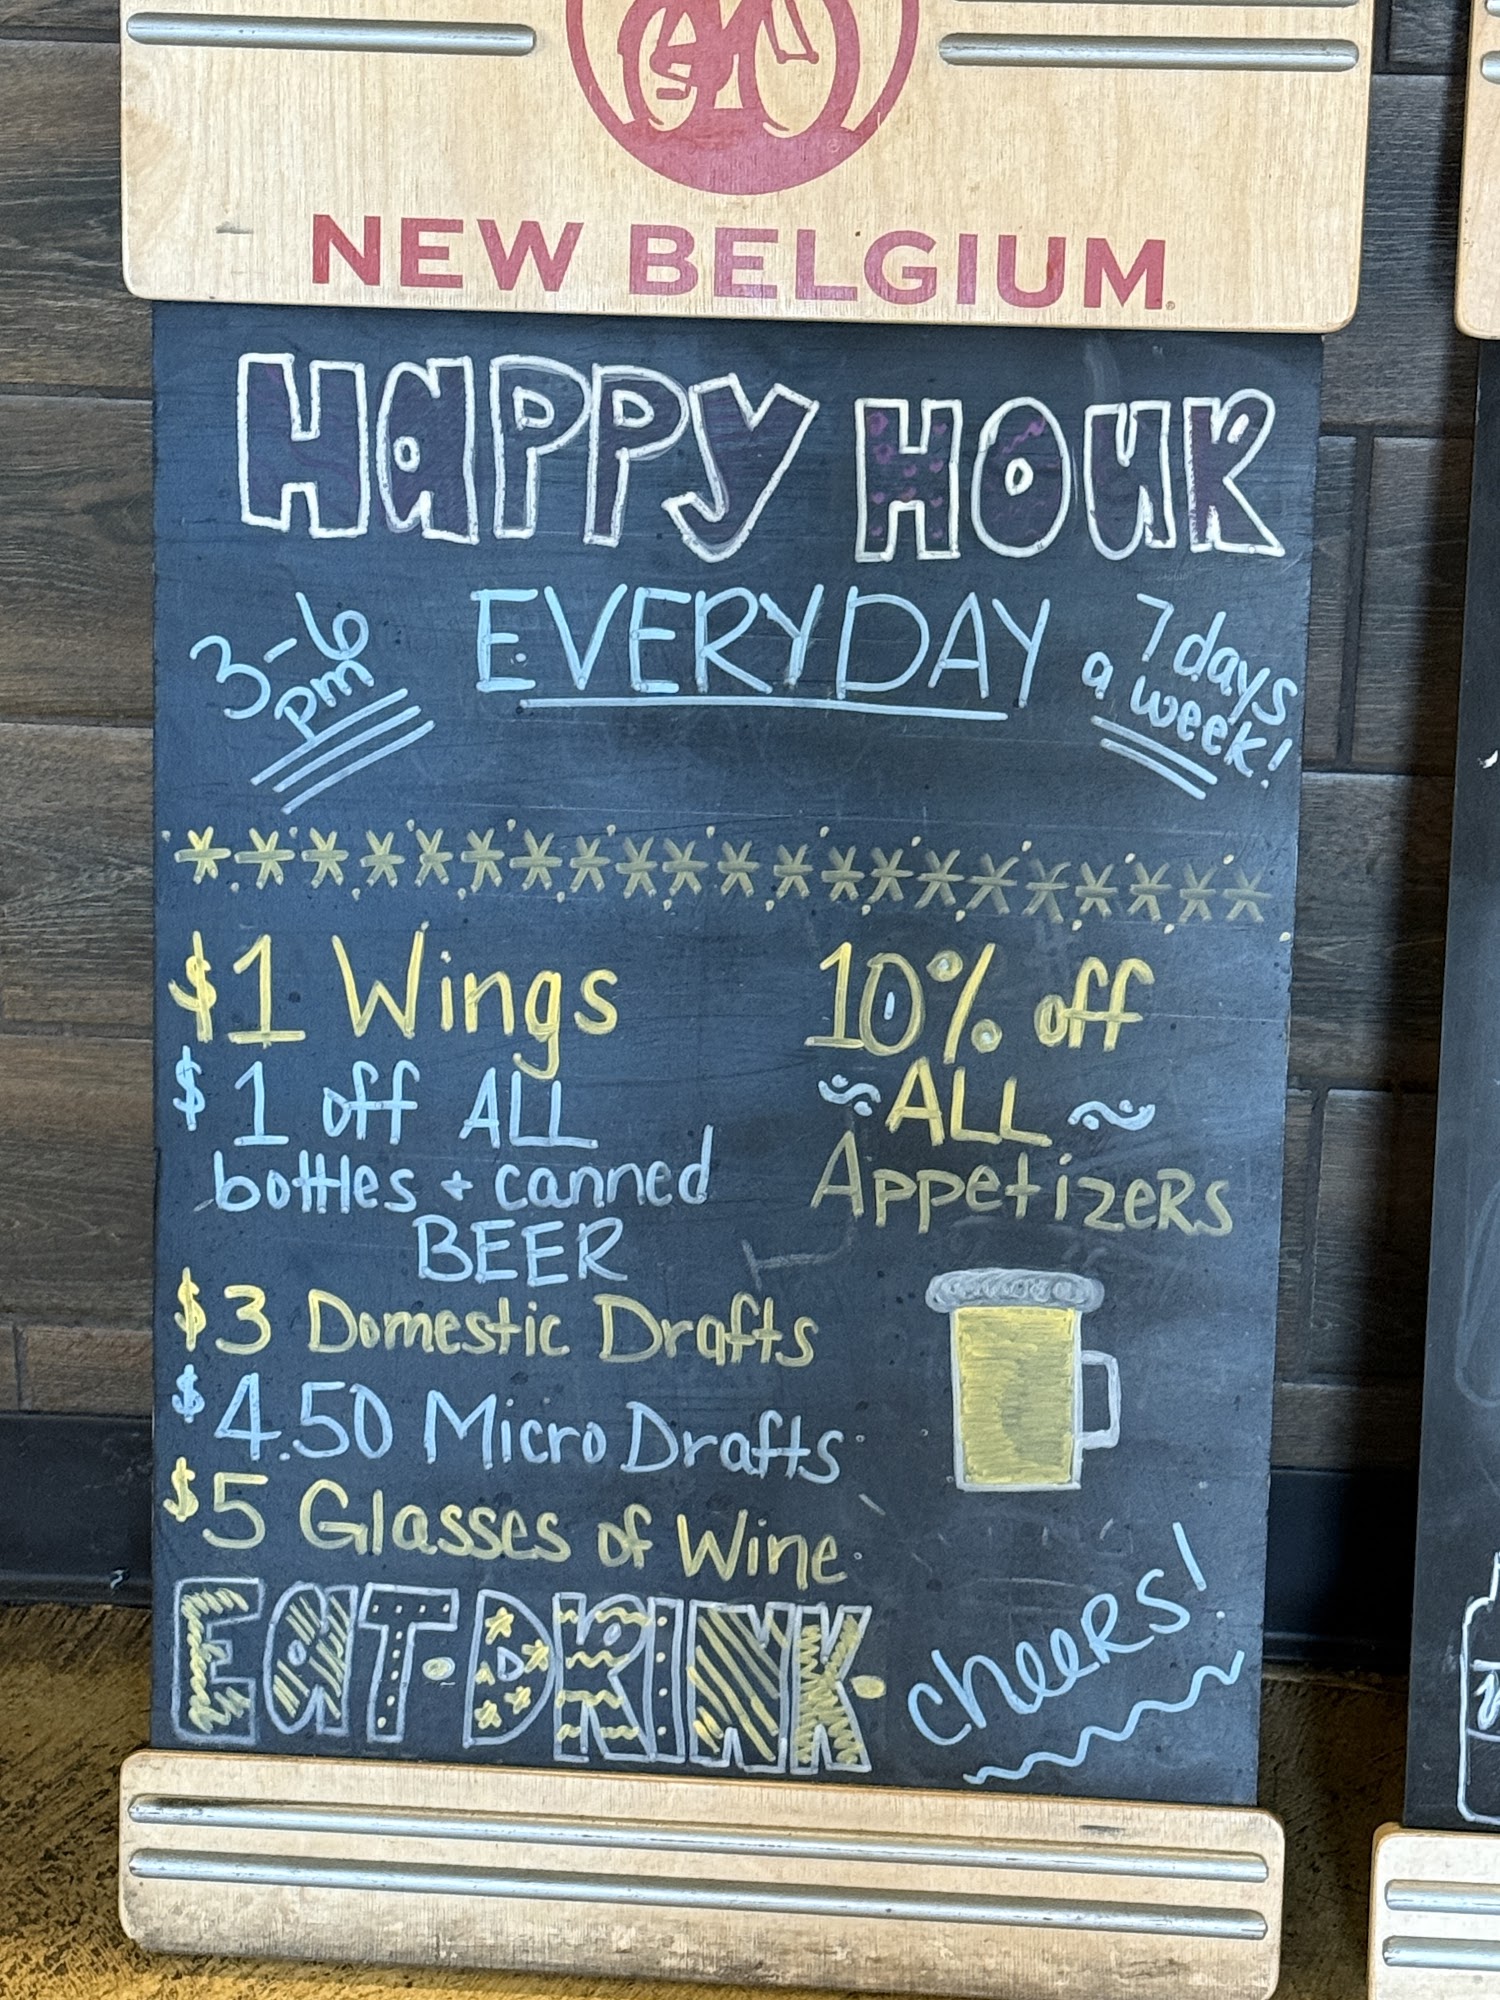 NEW BELGIUM
HAPPY HOUR
3-6 pm
EVERYDAY
7 days
a week!
$1 Wings
$1 off ALL
bottles + canned
BEER
$3 Domestic Drafts
$4.50 Micro Drafts
$5 Glasses of Wine
10% off
~ALL~
Appetizers
EAT·DRINK·
cheers!